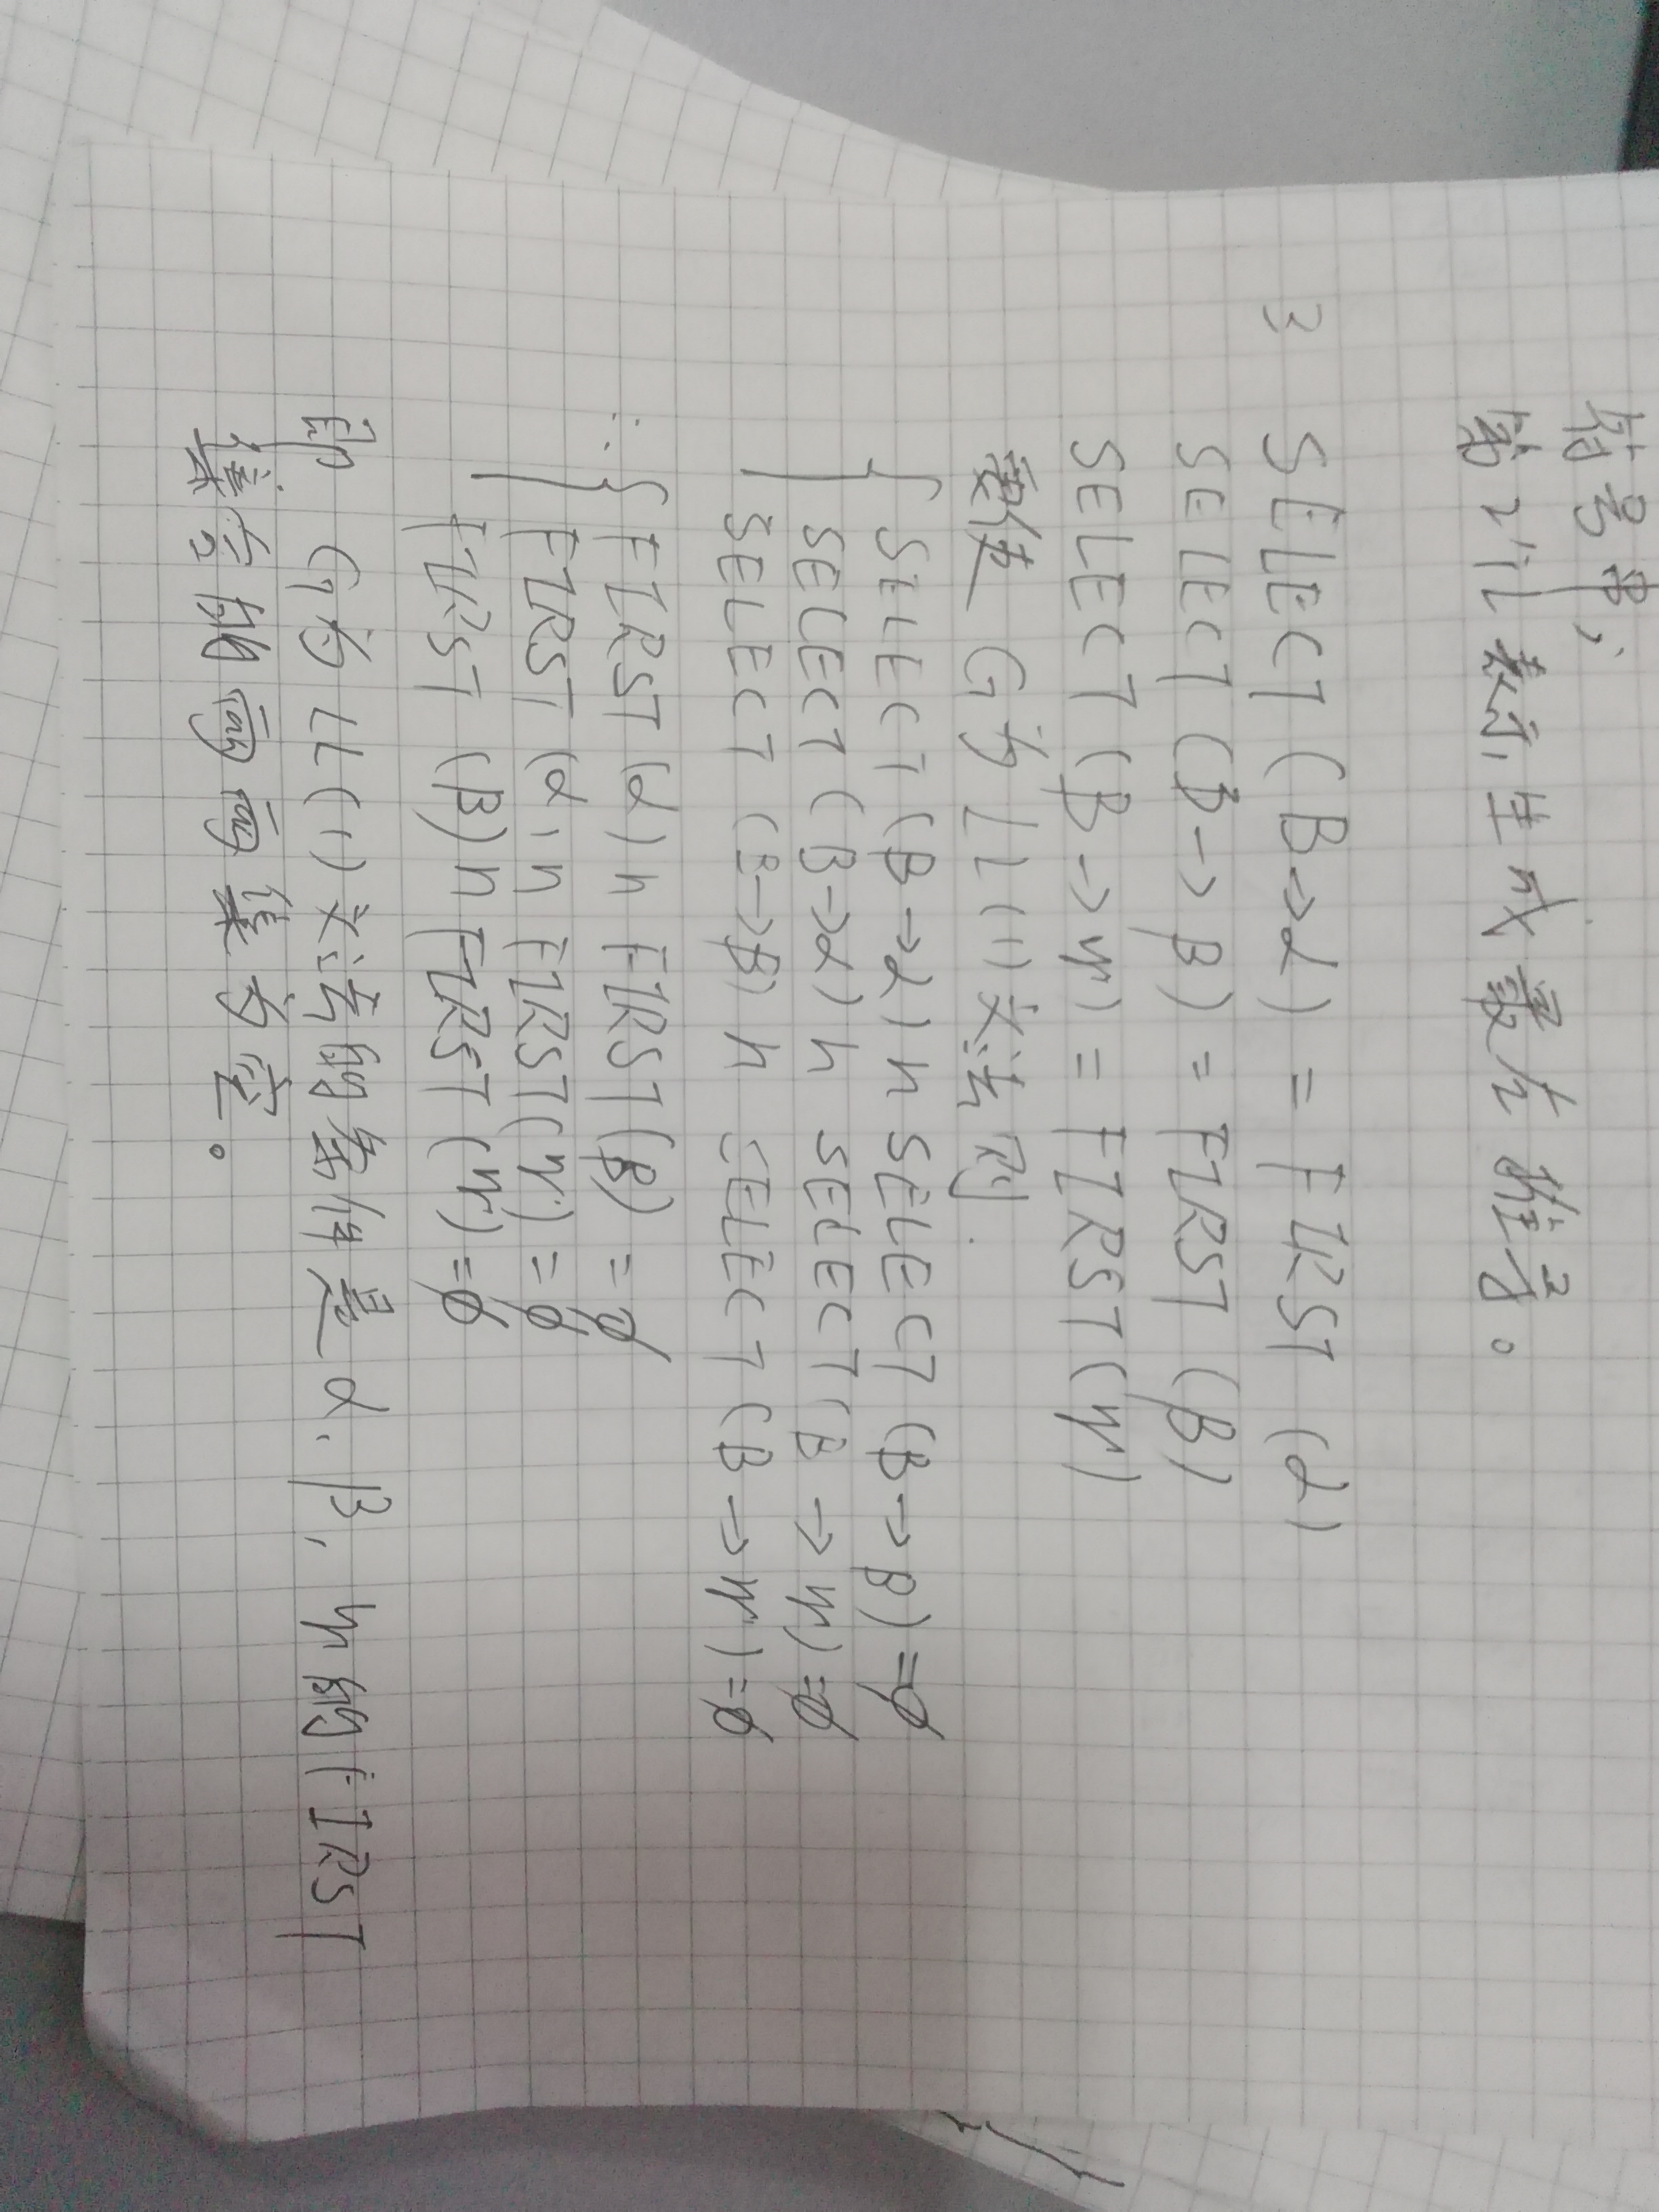 符号串,
第2行表示,生成最右推导。
3 SELECT (B→α) = FIRST (α)
SELECT (B→β) = FIRST (β)
SELECT (B→η) = FIRST (η)
要使 G为LL(1)文法 则.
{ SELECT (B→α) ∩ SELECT (B→β) = ∅
SELECT (B→α) ∩ SELECT (B→η) = ∅
SELECT (B→β) ∩ SELECT (B→η) = ∅
∴ { FIRST (α) ∩ FIRST (β) = ∅
FIRST (α) ∩ FIRST (η) = ∅
FIRST (β) ∩ FIRST (η) = ∅
即 G为LL(1)文法的条件是 α. β, η的FIRST
集合的两两集为空。